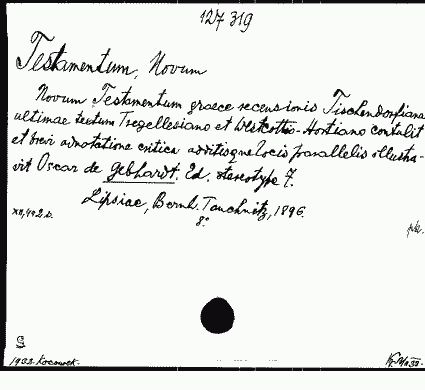 127319
Testamentum, Novum
Novum Testamentum graece recensionis Tischendorfianae
ultimae textum Tregellesiano et Westcottio-Hortiano contulit
et brevi adnotatione critica additisque locis parallelis illustra-
vit Oscar de Gebhardt. Ed. stereotype 7.
Lipsiae, Bernh. Tauchnitz, 1896.
XII, 492 s. 8º
S
1932.